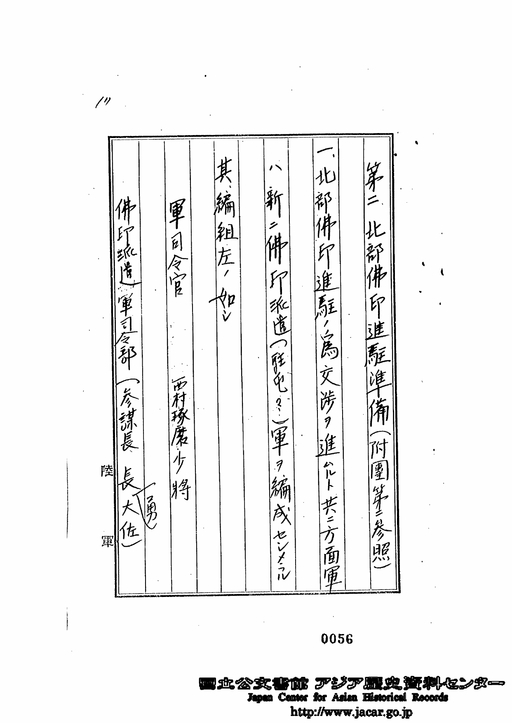 第二、北部佛印進駐準備(附圖第二参照)
一、北部佛印進駐ノ爲交渉ヲ進ムルト共ニ方面軍
ハ新ニ佛印派遣(駐屯?)軍ヲ編成センメラル
其ノ編組左ノ如シ
軍司令官 西村琢磨少將
佛印派遣軍司令部(参謀長 長大佐)
(勇)
陸軍
0056
国立公文書館 アジア歴史資料センター
Japan Center for Asian Historical Records
http://www.jacar.go.jp